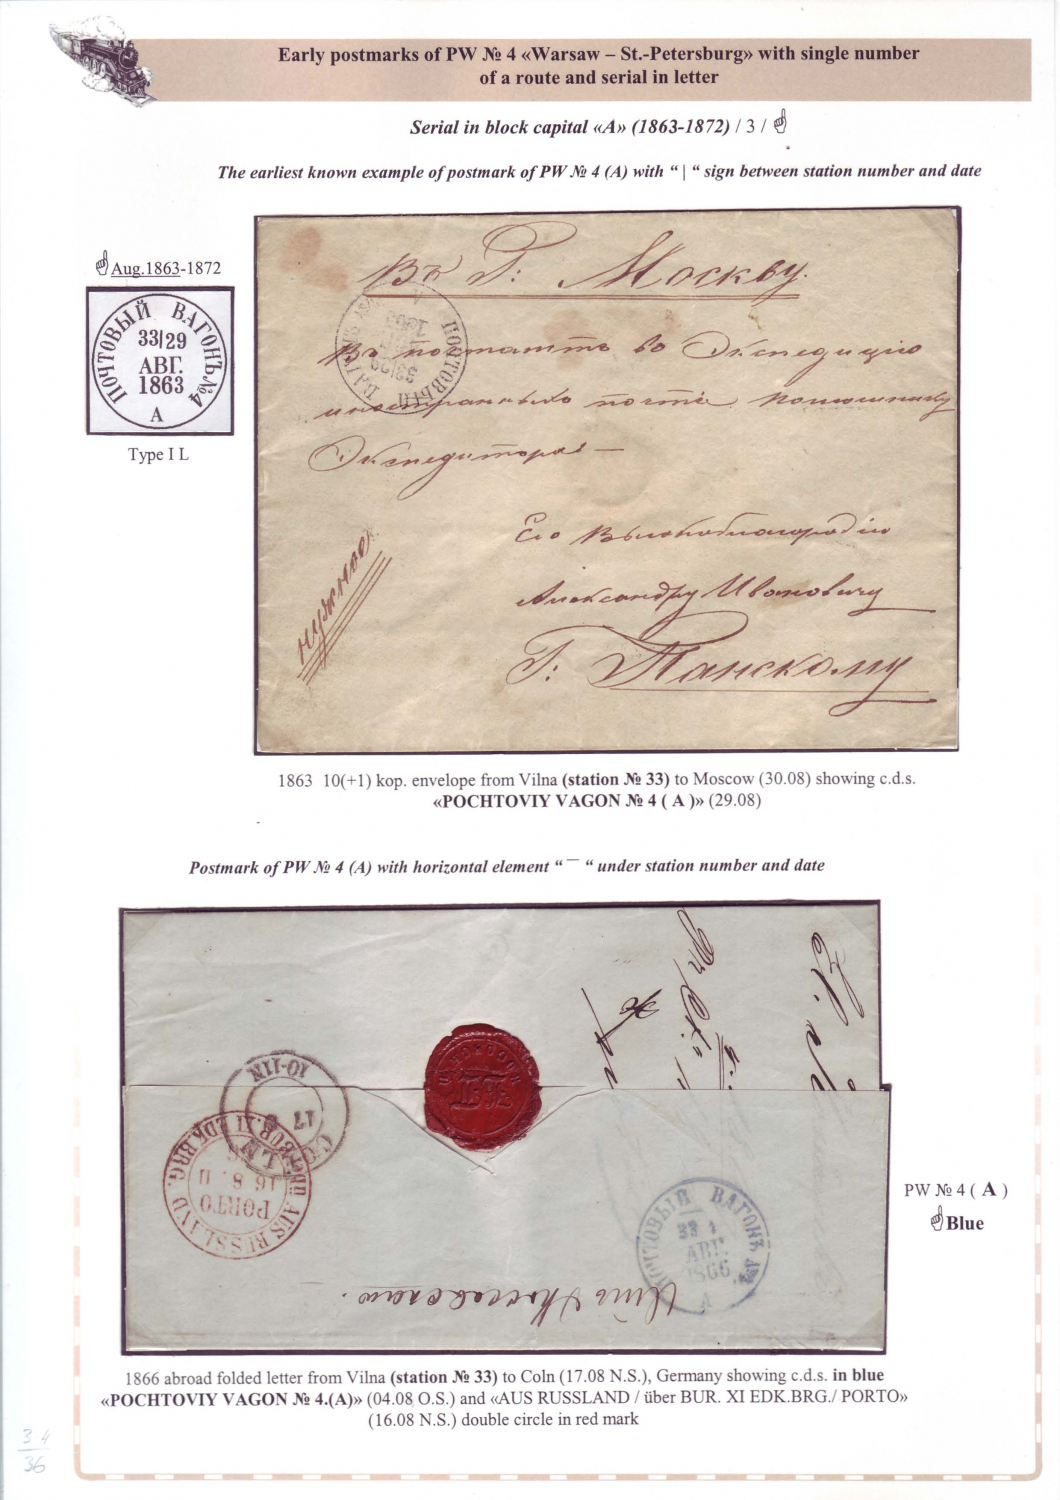 Early postmarks of PW № 4 «Warsaw – St.-Petersburg» with single number
of a route and serial in letter
Serial in block capital «A» (1863-1872) / 3 /
The earliest known example of postmark of PW № 4 (A) with “ | “ sign between station number and date
Aug.1863-1872
ПОЧТОВЫЙ ВАГОНЪ №4
33|29
АВГ.
1863
А
Type I L
Въ Г: Москву.
ПОЧТОВЫЙ
33|29
1863
Въ почтамтъ во Экспедицію
иностранныхъ почтъ помошнику
Экспедитора –
Его Высокоблагородію
Александру Ивановичу
Г: Панскому
нужное
1863 10(+1) kop. envelope from Vilna (station № 33) to Moscow (30.08) showing c.d.s.
«POCHTOVIY VAGON № 4 ( A )» (29.08)
Postmark of PW № 4 (A) with horizontal element “ ¯ “ under station number and date
10-11N
17 8
AUS RUSSLAND
BUR. XI EDK.BRG.
16 8
PORTO
ПОЧТОВЫЙ ВАГОНЪ №4
33 4
АВГ.
1866
А
PW № 4 ( A )
Blue
1866 abroad folded letter from Vilna (station № 33) to Coln (17.08 N.S.), Germany showing c.d.s. in blue
«POCHTOVIY VAGON № 4.(A)» (04.08 O.S.) and «AUS RUSSLAND / über BUR. XI EDK.BRG./ PORTO»
(16.08 N.S.) double circle in red mark
34
36